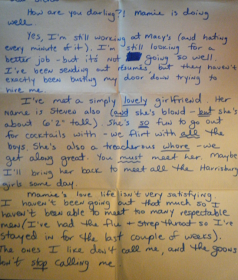 How are you darling?! Mamie is doing
well.
Yes, I'm still working at Macy's (and hating
every minute of it). I'm still looking for a
better job - but it's not going so well.
I've been sending out résumés but they haven't
exactly been busting my door down trying to
hire me.
I've met a simply lovely girlfriend. Her
name is Steven also (and she's blond - but she's
about 6' talk). She's so fun to go out
for cocktails with - we flirt with all the
boys. She's also a treacherous whore - we
get along great. You must meet her. Maybe
I'll bring her back to meet all the Harrisburg
girls some day.
Mamie's love life isn't very satisfying.
I haven't been going out that much so I
haven't been able to meet too many respectable
men (I've had the flu + strep throat so I've
stayed in for the last couple of weeks).
The ones I like don't call me, and the goons
don't stop calling me.